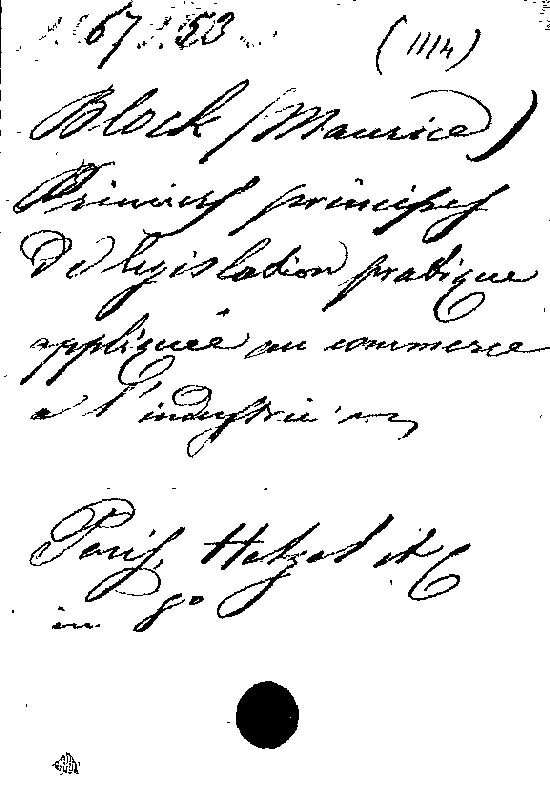 67.53 (1114)
Block (Maurice)
Premiers principes
de législation pratique
appliquée au commerce
a l'industrie
Paris, Hetzel et C
in 8º